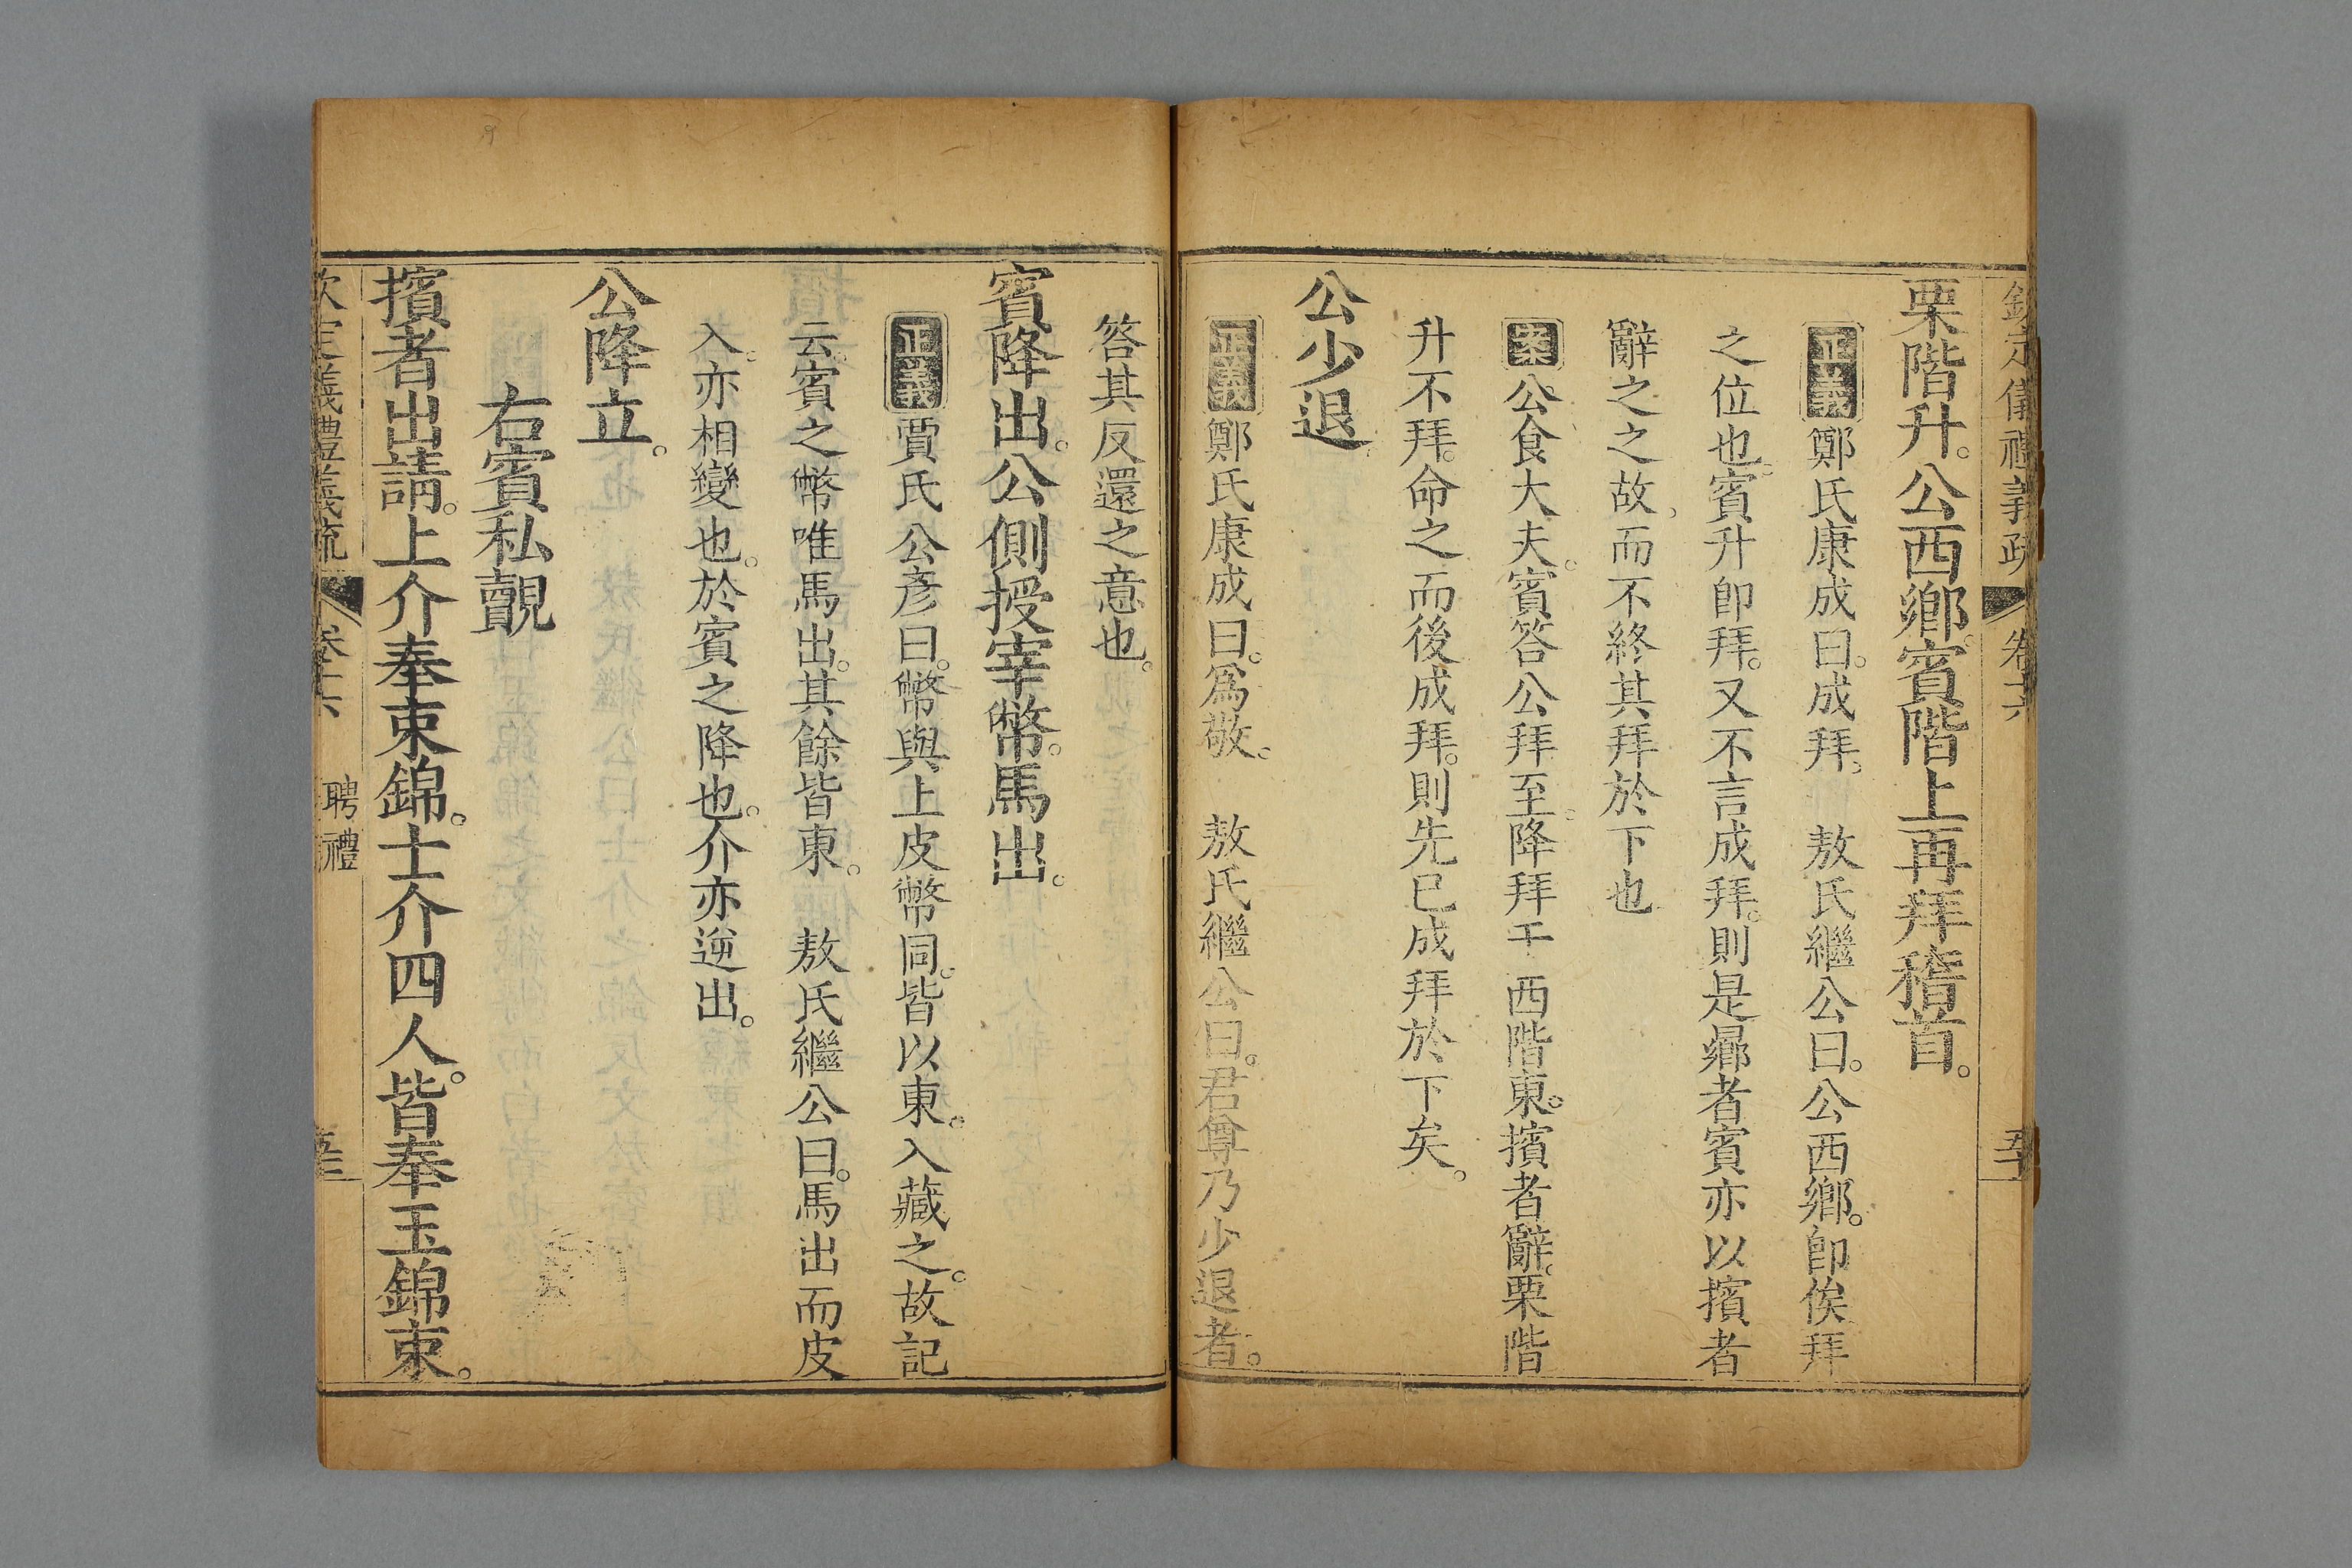 欽定儀禮義疏 卷十六 五十
栗階升。公西鄉。賓階上再拜稽首。
正義鄭氏康成曰。成拜。 敖氏繼公曰。公西鄉。卽俟拜
之位也。賓升卽拜。又不言成拜。則是曏者賓亦以擯者
辭之之故。而不終其拜於下也
案公食大夫。賓答公拜至。降拜于西階東。擯者辭。栗階
升不拜。命之而後成拜。則先已成拜於下矣。
公少退
正義鄭氏康成曰。爲敬。 敖氏繼公曰。君尊乃少退者。
答其反還之意也。
賓降出。公側授宰幣。馬出。
正義賈氏公彥曰。幣與上皮幣同。皆以東。入藏之。故記
云。賓之幣唯馬出。其餘皆東。 敖氏繼公曰。馬出而皮
入。亦相變也。於賓之降也。介亦逆出。
公降立。
右賓私覿
擯者出請。上介奉束錦。士介四人。皆奉玉錦束。
欽定儀禮義疏 卷十六 聘禮